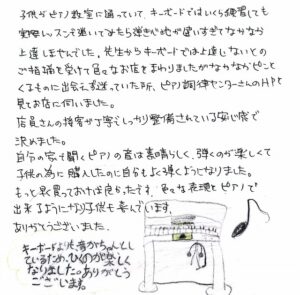 子供がピアノ教室に通っていて、キーボードではいくら練習しても
実際レッスンで弾いてみるも弾き心地が違いすぎてなかなか
上達しませんでした。先生からキーボードでは上達しないとの
ご指摘を受けて色々なお店をまわりましたがなかなかピンと
くるものに出会えず迷っていた所、ピアノ調律センターさんのHPを
見てお店に伺いました。
店員さんの接客が丁寧でしっかり整備されている安心感で
決めました。
自分の家で聞くピアノの音は素晴らしく、弾くのが楽しくて
子供の為に購入したのに自分もよく弾くようになりました。
もっと早く買っておけば良かったです。色々な表現をピアノで
出来るようになり子供も喜んでいます。
ありがとうございました。
キーボードよりも音がちゃんとし
ているため、ひくのが楽しく
なりました。ありがとう
ございます。